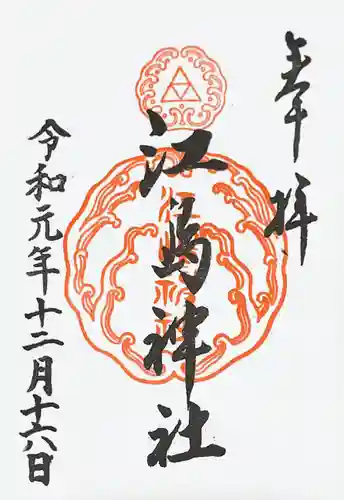 奉拝
江島神社
令和元年十二月十六日